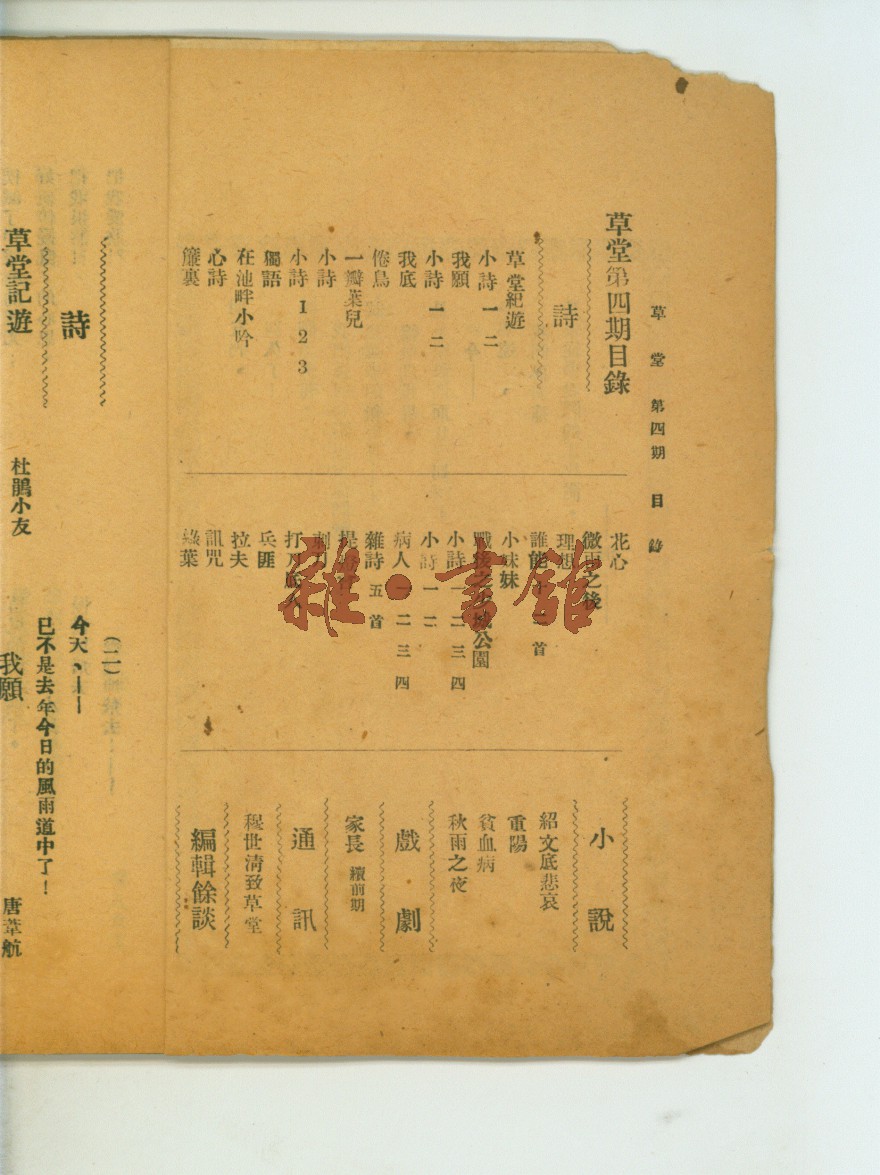 草堂 第四期 目錄
草堂第四期目錄
詩
草堂紀遊
小詩 一 二
我願
小詩 一 二
我底
倦鳥
一瓣葉兒
小詩
小詩 1 2 3
獨語
在池畔小吟
心詩
簾裏
花心
微雨之後
理想
誰能 十二首
小妹妹
戰後之少城公園
小詩 一 二 三 四
小詩 一 二
病人 一 二 三 四
雜詩 五首
打
兵匪
拉夫
訊咒
綠葉
小說
紹文底悲哀
重陽
貧血病
秋雨之夜
戲劇
家長 續前期
通訊
穆世清致草堂
編輯餘談
(二)
今天、——
已不是去年今日的風雨道中了!
詩
草堂記遊
杜鵑小友
我願
唐葦航
雜·書館